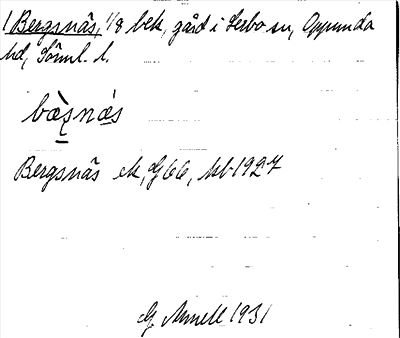 1 Bergsnäs, 1/8 bek, gård i Lerbo sn, Oppunda
hd, Söml. l.
bæ̀ʂnä́s
Bergsnäs ek, G66, Mb 1927
G Annell 1931